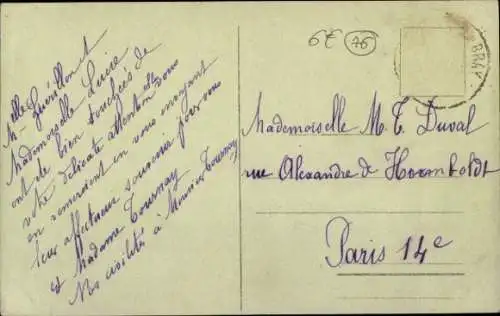 Mlle Guérillon et
Mademoiselle Luise
ont été bien touchées de
votre délicate attention elles vous
en remercient en vous envoyant
leur affectueux souvenir pour vous
et Madame Tournay
Nos civilités à Monsieur Tournay
6€
76
BRAY
Mademoiselle M. T. Duval
rue Alexandre de Hoomboldt
Paris 14e